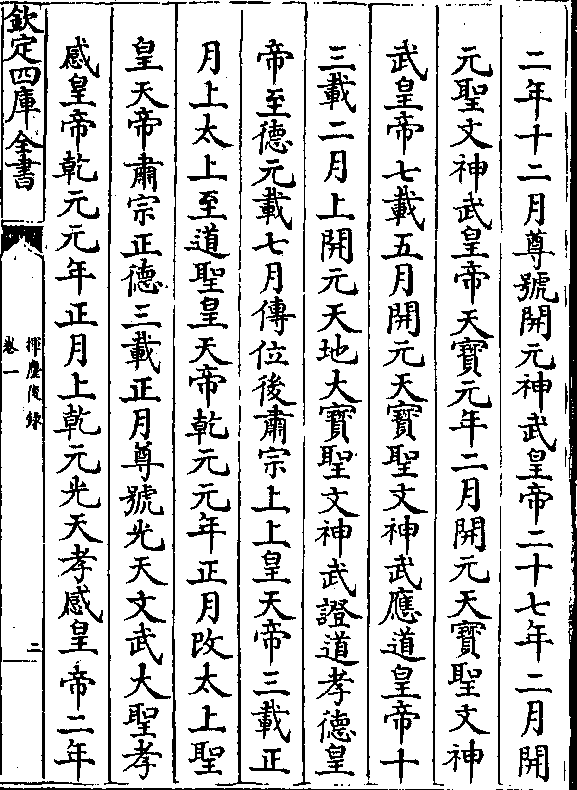 二年十二月尊號開元神武皇帝二十七年二月開
元聖文神武皇帝天寶元年二月開元天寶聖文神
武皇帝七載五月開元天寶聖文神武應道皇帝十
三載二月上開元天地大寶聖文神武證道孝德皇
帝至德元載七月傳位後肅宗上上皇天帝三載正
月上太上至道聖皇天帝乾元元年正月改太上聖
皇天帝肅宗正德三載正月尊號光天文武大聖孝
感皇帝乾元元年正月上乾元光天孝感皇帝二年
欽定四庫全書
揮麈後錄
卷一
二